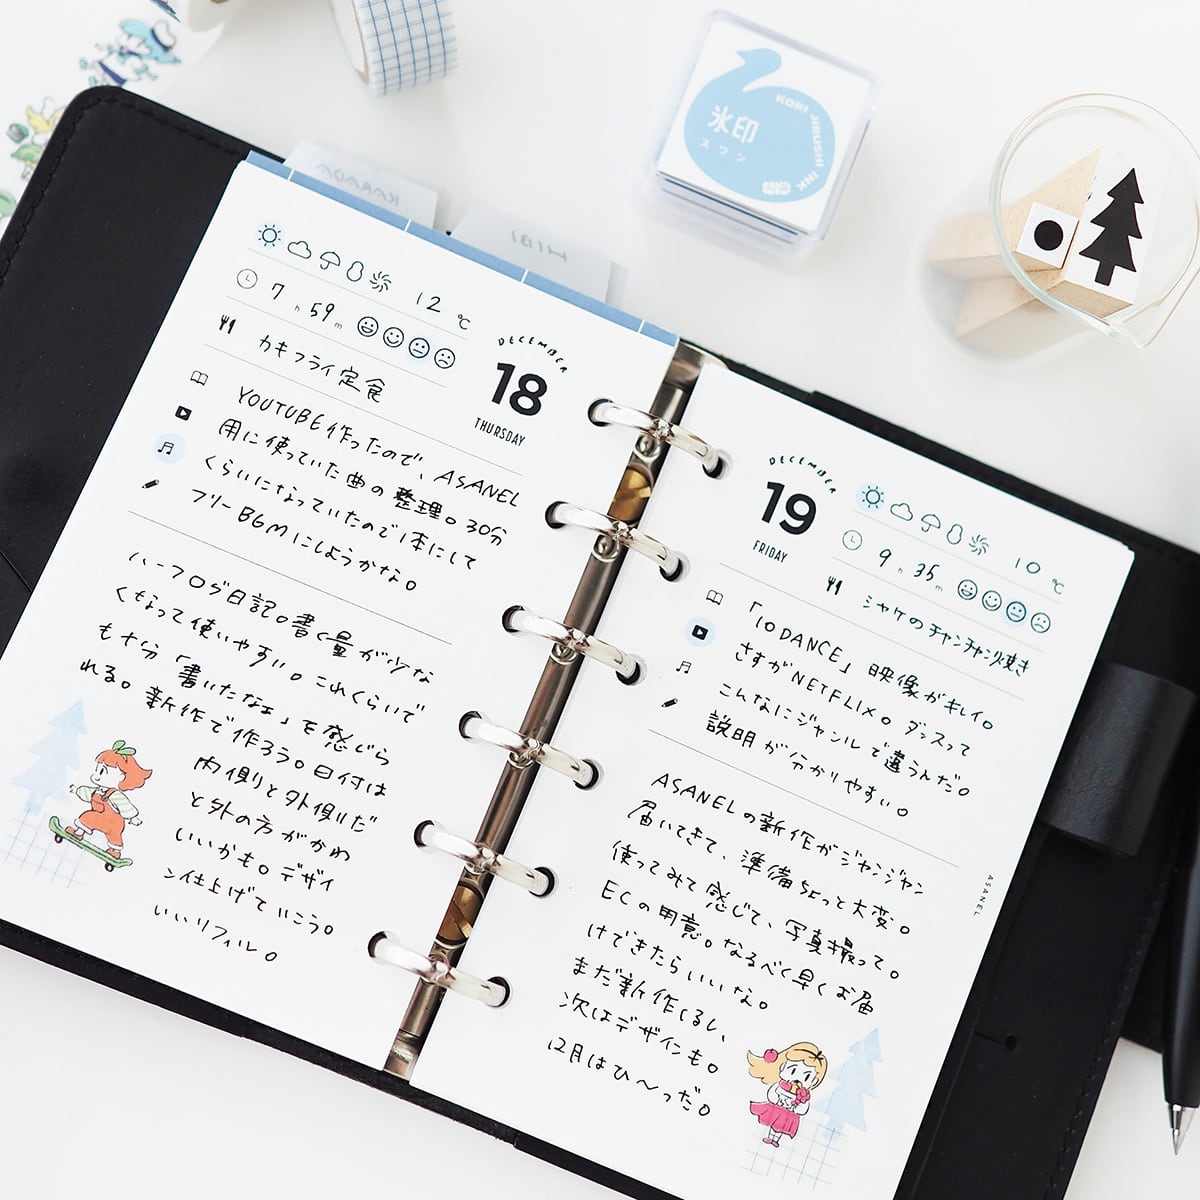 氷印
スワン
KORI JIRUSHI INK
12 ℃
7 h 59 m
カキフライ定食
DECEMBER
18
THURSDAY
YOUTUBE作ったので、ASANEL
用に使っていた曲の整理。30分
くらいになっていたので1本にして
フリーBGMにしようかな。
ハーフログ日記。書く量が少な
くなって使いやすい。これくらいで
も十分「書いたなぁ」を感じら
れる。新作で作ろう。日付は
内側と外側だ
と外の方がかわ
いいかも。デザイ
ン仕上げていこう。
いいリフィル。
DECEMBER
19
FRIDAY
10 ℃
9 h 35 m
シャケのチャンチャン焼き
「10DANCE」映像がキレイ。
さすがNETFLIX。ダンスって
こんなにジャンルで違うんだ。
説明が分かりやすい。
ASANELの新作がジャンジャン
届いてきて、準備ちょっと大変。
使ってみて感じて、写真撮って。
ECの用意。なるべく早くお届
けできたらいいな。
まだ新作くるし、
次はデザインも。
12月はひ〜っだ。
ASANEL